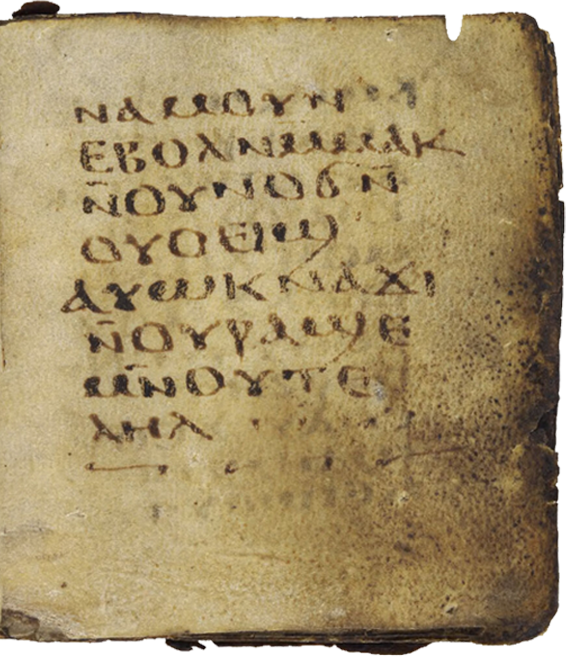 ⲛⲁⲙⲟⲩⲛ
ⲉⲃⲟⲗⲛⲙⲙⲁⲕ
ⲛ̄ⲟⲩⲛⲟϭⲛ̄
ⲟⲩⲟⲉⲓϣ
ⲁⲩⲱⲕⲛⲁϫⲓ
ⲛ̄ⲟⲩⲣⲁϣⲉ
ⲙⲛ̄ⲟⲩⲧⲉ
ⲗⲏⲗ